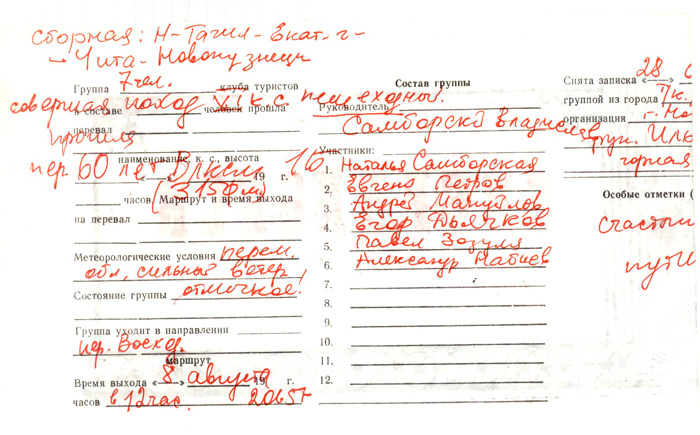 сборная: Н-Тагил-Екат.г-
-Чита-Новокузнецк
Группа 7 чел. клуба туристов
совершая поход VI к.с. пешеходный.
в составе человек прошла
перевал прошла
пер. 60 лет Влксм
наименование, к. с., высота
19 г. 16
(3150 м)
часов Маршрут и время выхода
на перевал
Метеорологические условия перем.
обл, сильный ветер,
Состояние группы отличное!
Группа уходит в направлении
пер. Восход.
маршрут
Время выхода «8» августа 19 г.
часов в 12 час. 2015г
Состав группы
Руководитель
Самборский Владислав
Участники:
1. Наталья Самборская
2. Евгений Петров
3. Андрей Мануйлов
4. Егор Дьячков
5. Павел Зозуля
6. Александр Набиев
7.
8.
9.
10.
11.
12.
Снята записка «28»
группой из города
организация
горная
Особые отметки (
счастли
пути